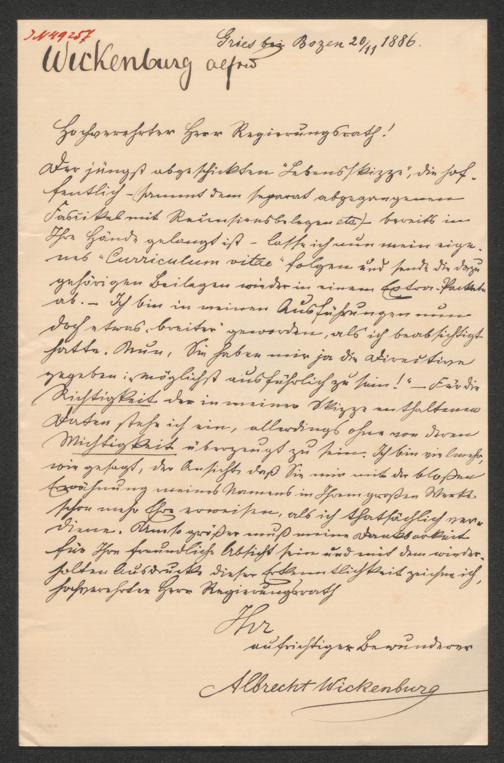 J.N. 49257
Wickenburg Alfred
Gries bei Bozen 20/11 1886.
Hochverehrter Herr Regierungsrath!
Der jüngst abgeschickten "Lebensskizze", die hof-
fentlich – sammt dem separat abgegangenen
Fascikel mit Recensionsbelegen etc) – bereits in
Ihre Hände gelangt ist – lasse ich nun mein eige-
nes "Curriculum vitae" folgen und sende die dazu
gehörigen Beilagen wieder in einem Extra-Packete
ab. – Ich bin in meinen Ausführungen nun
doch etwas "breiter" geworden, als ich beabsichtigt
hatte. Nun, Sie haben mir ja die Directive
gegeben: "möglichst ausführlich zu sein!" – Für die
Richtigkeit der in meiner Skizze enthaltenen
Daten stehe ich ein, allerdings ohne von deren
Wichtigkeit überzeugt zu sein. Ich bin vielmehr,
wie gesagt, der Ansicht, daß Sie mir mit der bloßen
Erwähnung meines Namens in Ihrem großen Werke
schon mehr Ehre erweisen, als ich thatsächlich ver-
diene. Umso größer muß meine Dankbarkeit
für Ihre freundliche Absicht sein und mit dem wieder-
holten Ausdrucke dieser Erkenntlichkeit zeichne ich,
hochverehrter Herr Regierungsrath
Ihr
aufrichtiger Bewunderer
Albrecht Wickenburg